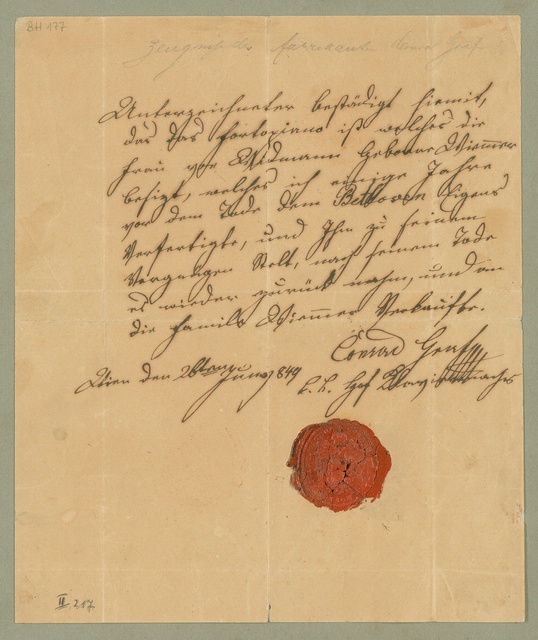 BH 177
Zeugniß des Fabrikanten Conrad Graf
Unterzeichneter bestädigt hiemit,
das das fortopiano ist welches die
Frau von Widmann Geborne Wimmer
besizt, welches ich einige Jahre
vor dem Tode dem Bethoven Eigens
Verfertigte, und Ihm zu seinem
Vergnügen Stelt, nach seinem Tode
es wieder zurück nahm, und an
die Familie Wimmer Verkaufte.
Conrad Graf
Wien den 26ten Juny 849
k. k. Hof Klaviermacher
II 217